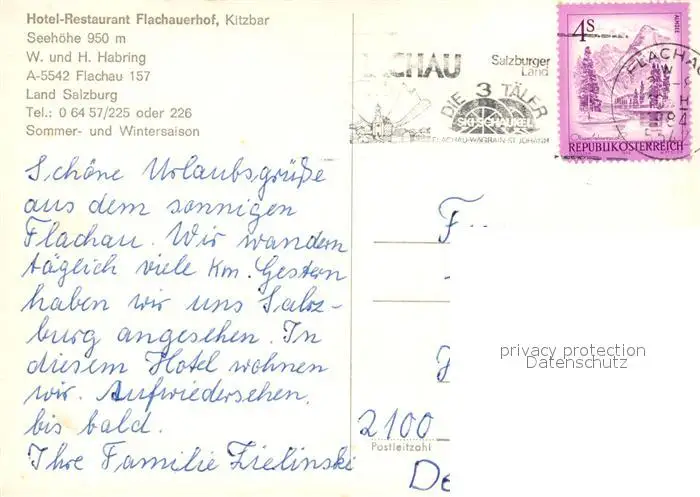 Hotel-Restaurant Flachauerhof, Kitzbar
Seehöhe 950 m
W. und H. Habring
A-5542 Flachau 157
Land Salzburg
Tel.: 0 64 57/225 oder 226
Sommer- und Wintersaison
Schöne Urlaubsgrüße
aus dem sonnigen
Flachau. Wir wandern
täglich viele Km. Gestern
haben wir uns Salz-
burg angesehen. In
diesem Hotel wohnen
wir. Aufwiedersehen,
bis bald.
Ihre Familie Zielinski
CHAU
Salzburger
Land
DIE 3 TÄLER
SKI-SCHAUKEL
FLACHAU-WAGRAIN-ST. JOHANN
4S
ALMSEE
REPUBLIK ÖSTERREICH
FLACHAU
F
2100
Postleitzahl
De
privacy protection
Datenschutz